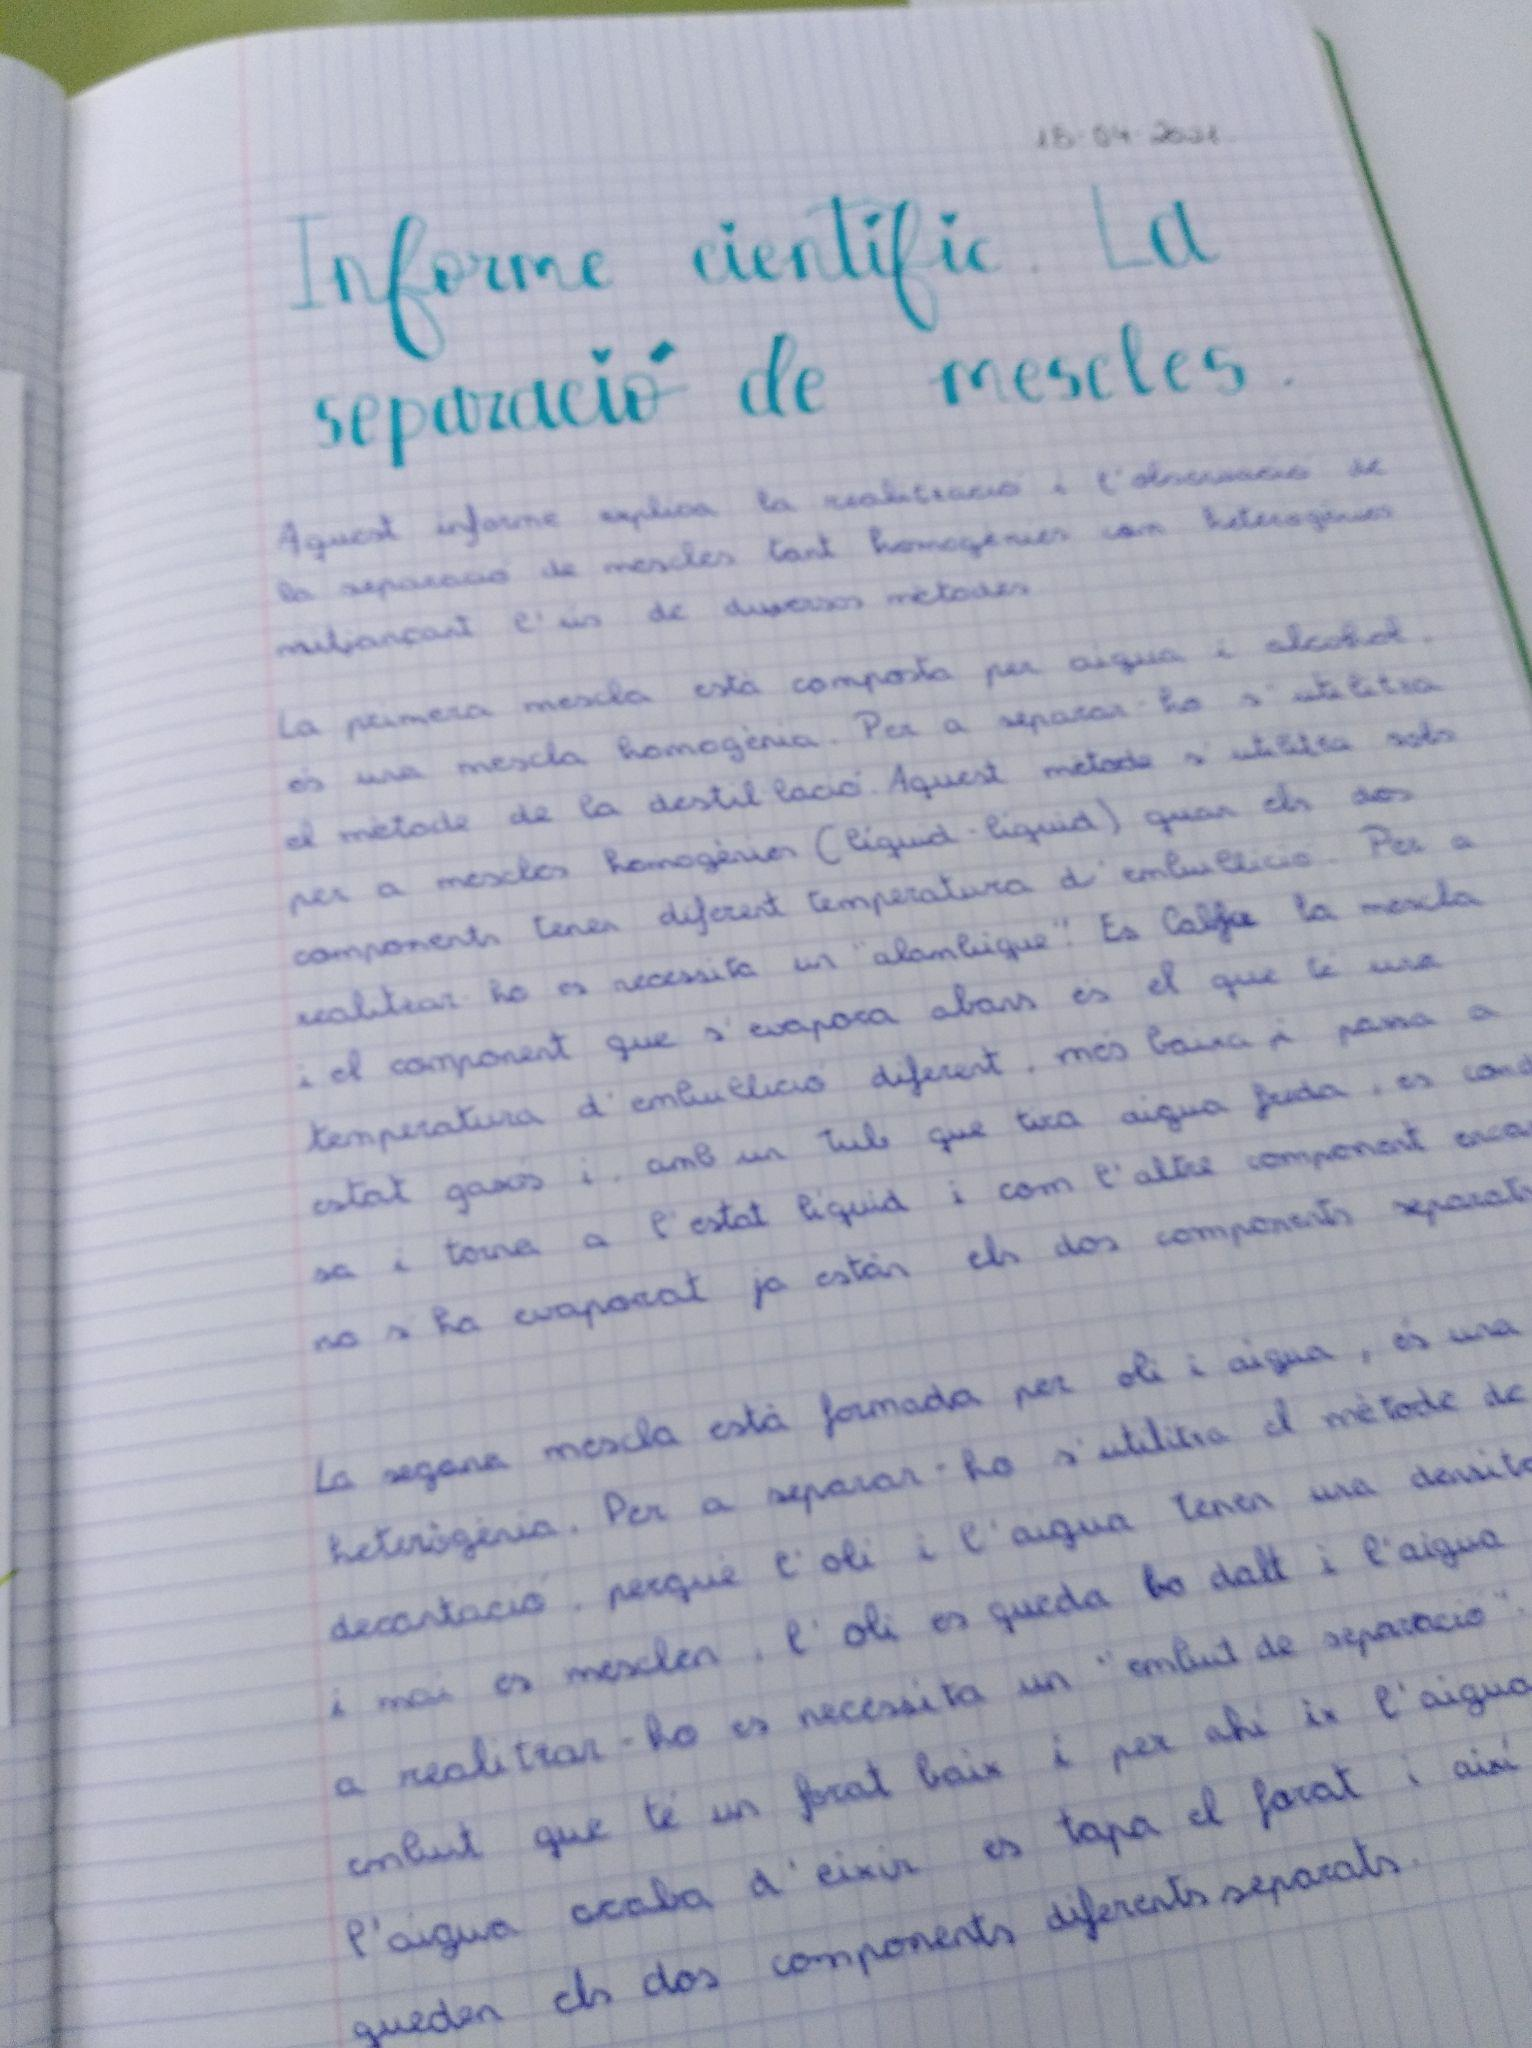 15-04-2021.
Informe científic. La
separació de mescles.
Aquest informe explica la realització i l'observació de
la separació de mescles tant homogènies com heterogènies
mitjançant l'ús de diversos mètodes
La primera mescla està composta per aigua i alcohol.
és una mescla homogènia. Per a separar-ho s'utilitza
el mètode de la destil·lació. Aquest mètode s'utilitza sols
per a mescles homogènies (líquid-líquid) quan els dos
components tenen diferent temperatura d'embullició. Per a
realitzar-ho es necessita un "alambique". Es Calfa la mescla
i el component que s'evapora abans és el que té una
temperatura d'embullició diferent, més baixa i passa a
estat gasós i, amb un tub que tira aigua freda, es cond
sa i torna a l'estat líquid i com l'altre component encar
no s'ha evaporat ja están els dos components separats
La segona mescla està formada per oli i aigua, és una
heterògènia. Per a separar-ho s'utilitza el mètode de
decantació, perquè l'oli i l'aigua tenen una densita
i mai es mesclen, l'oli es queda bo dalt i l'aigua
a realitzar-ho es necessita un "embut de separació".
embut que té un forat baix i per ahí ix l'aigua
l'aigua acaba d'eixir es tapa el forat i així
queden els dos components diferents separats.